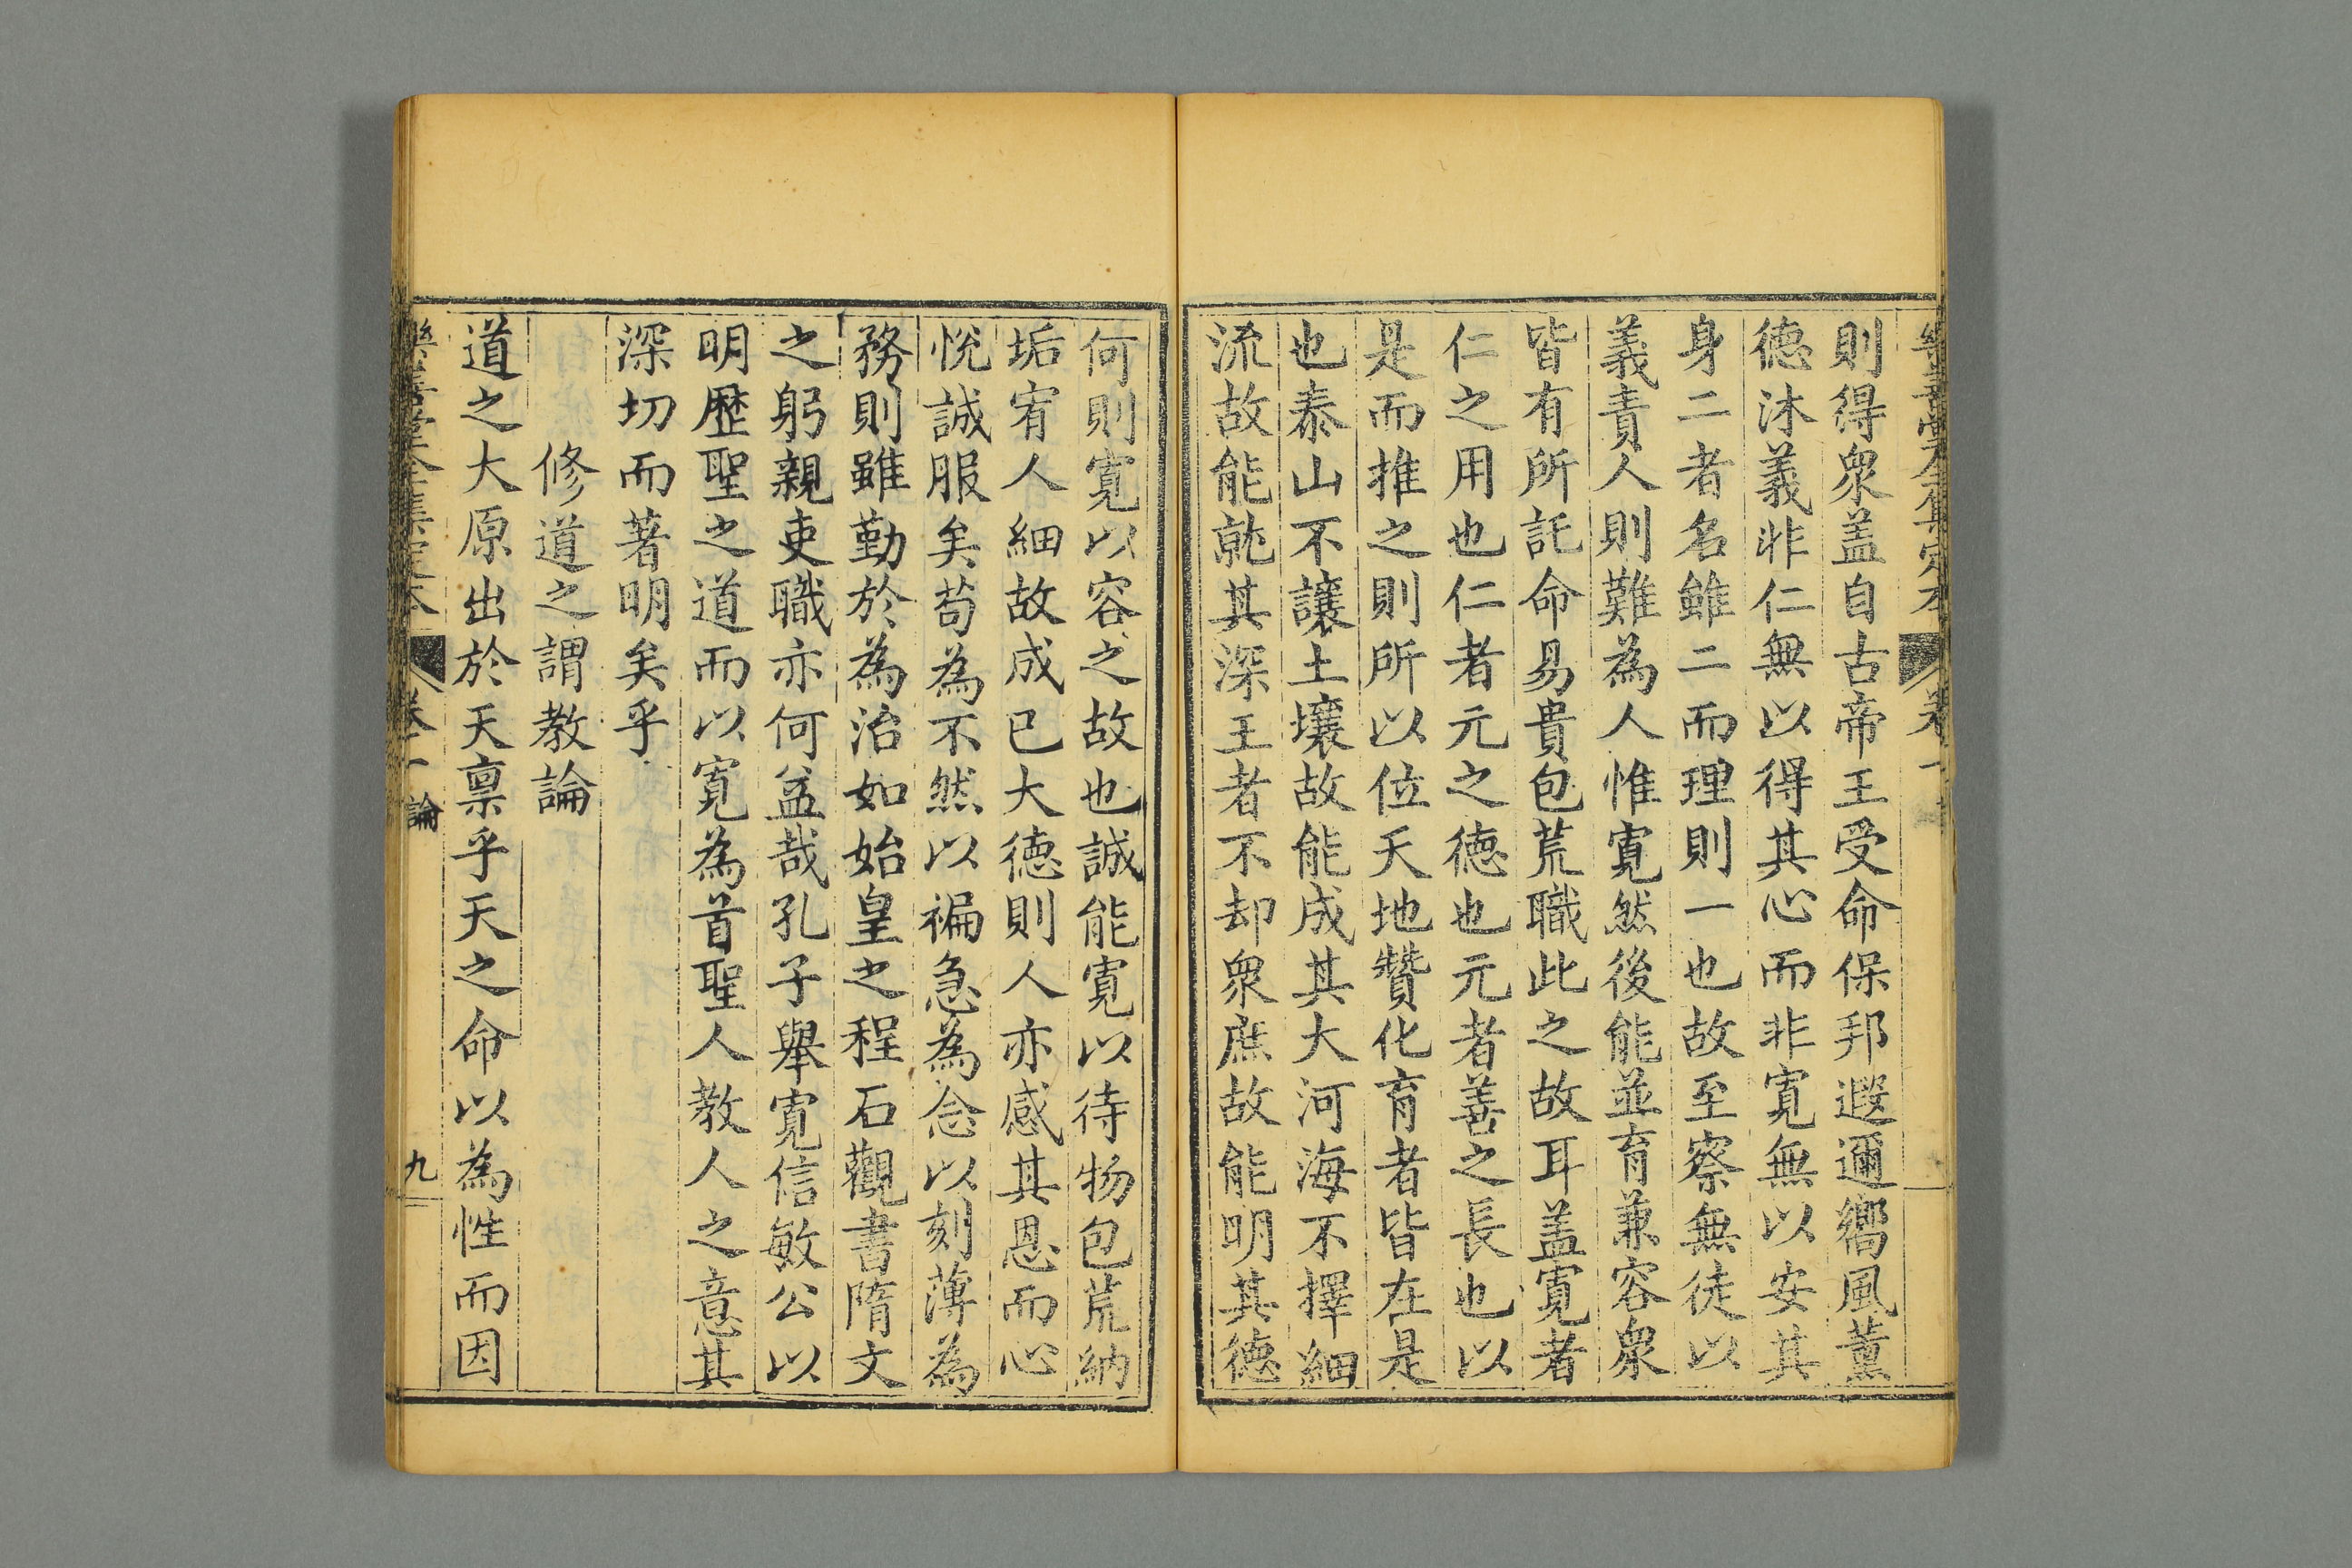 則得衆盖自古帝王受命保邦遐邇嚮風薰
德沐義非仁無以得其心而非寛無以安其
身二者名雖二而理則一也故至察無徒以
義責人則難為人惟寛然後能並育兼容衆
皆有所託命易貴包荒職此之故耳盖寛者
仁之用也仁者元之德也元者善之長也以
是而推之則所以位天地贊化育者皆在是
也泰山不讓土壤故能成其大河海不擇細
流故能就其深王者不却衆庶故能明其德
何則寛以容之故也誠能寛以待物包荒納
垢宥人細故成已大德則人亦感其恩而心
悅誠服矣茍為不然以褊急為念以刻薄為
務則雖勤於為治如始皇之程石觀書隋文
之躬親吏職亦何益哉孔子舉寛信敏公以
明歷聖之道而以寛為首聖人教人之意其
深切而著明矣乎
修道之謂教論
道之大原出於天禀乎天之命以為性而因
樂善堂全集定本 卷一 論 九